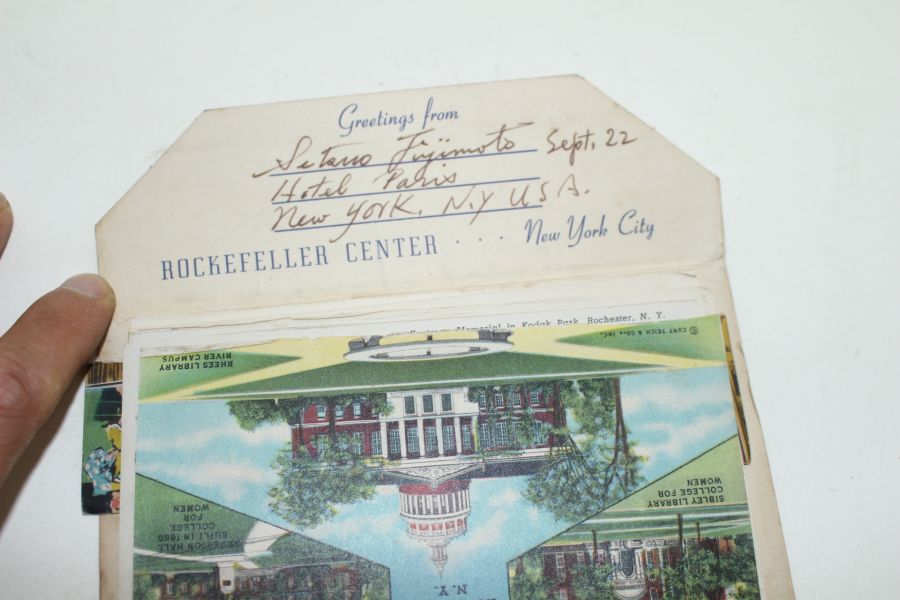 Greetings from
Setano Fujimoto Sept. 22
Hotel Paris
New York. N.Y U S A.
ROCKEFELLER CENTER . . . New York City
Memorial in Kodak Park, Rochester, N. Y.
© CURT TEICH & CO., INC.
RHEES LIBRARY
RIVER CAMPUS
SIBLEY LIBRARY
COLLEGE FOR
WOMEN
ANDERSON HALL
BUILT IN 1860
COLLEGE
FOR
WOMEN
N.Y.